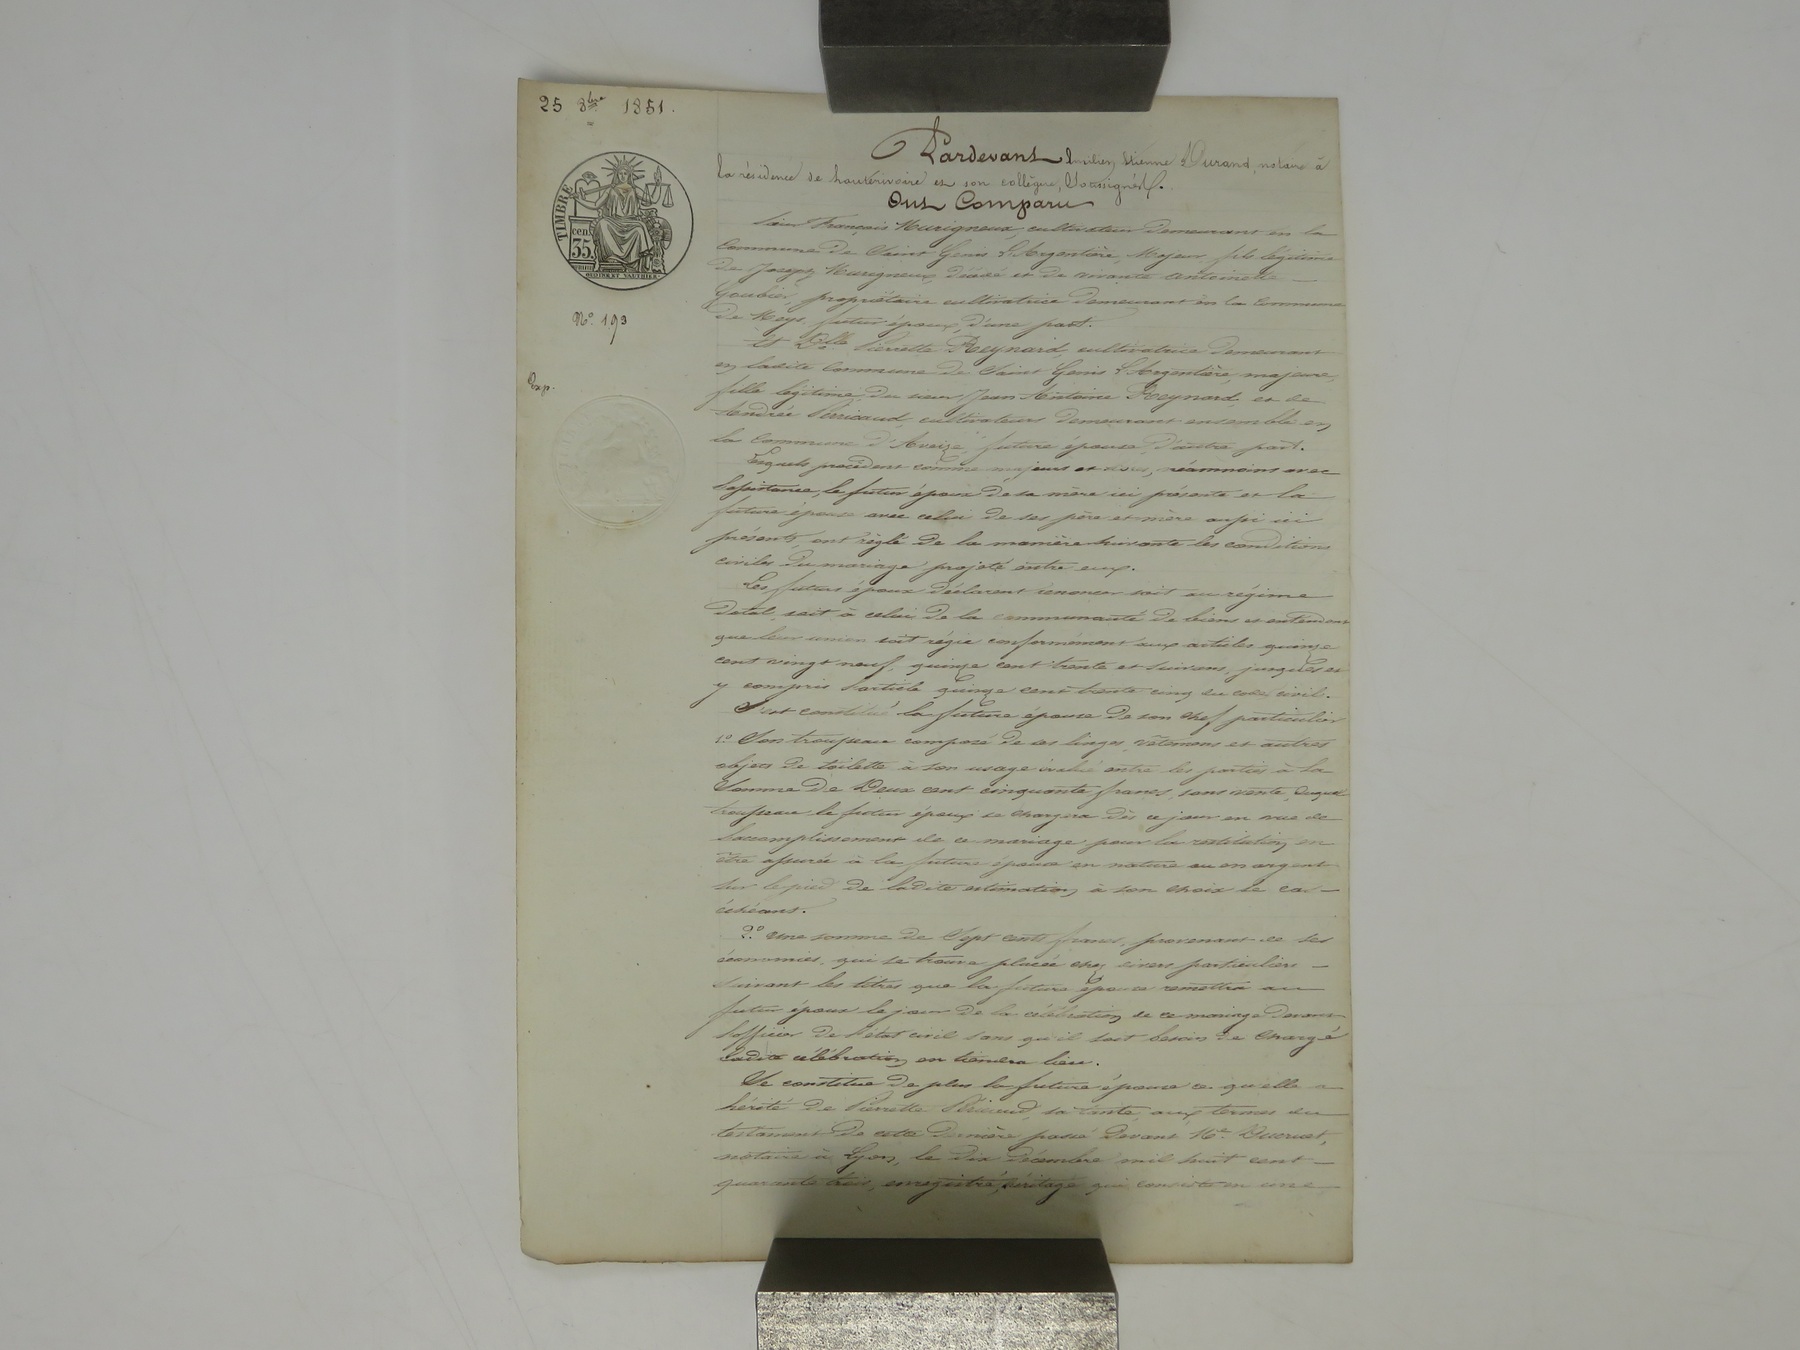 25 8bre 1851.
TIMBRE
cen.
35
No 193
Exp.
Pardevant Emilien Etienne Durand, notaire à
la résidence de hauterivoire et son collègue, soussignés.
Ont Comparu
Sieur François Murigneux, cultivateur demeurant en la
Commune de Saint Genis L'Argentière, Majeur, fils légitime
de Joseph Murigneux, décédé et de vivante Antoinette
Goubier, propriétaire cultivatrice demeurant en la Commune
de Meys, futur époux, d'une part.
Et Delle Pierrette Reynard, cultivatrice demeurant
en ladite Commune de Saint Genis L'Argentière, majeure,
fille légitime du sieur Jean Antoine Reynard, et de
Andrée Perricaud, cultivateurs demeurant ensemble en
la Commune d'Aveize, future épouse, d'autre part.
Lesquels procèdent comme majeurs et néanmoins avec
l'assistance, le futur époux de sa mère ici présente et la
future épouse avec celui de ses père et mère aussi ici
présents, ont réglé de la manière suivante les conditions
civiles du mariage projeté entre eux.
Les futurs époux déclarent renoncer soit au régime
dotal, soit à celui de la communauté de biens et entendent
que leur union soit régie conformément aux articles quinze
cent vingt neuf, quinze cent trente et suivans, jusques et
y compris l'article quinze cent trente cinq du code civil.
S'est constitué la future épouse de son chef particulier
1.o Son trousseau composé de ses linges, vêtemens et autres
objets de toilette à son usage évalué entre les parties à la
Somme de Deux cent cinquante francs, sans vente, duquel
trousseau le futur époux se chargera dès ce jour en vue de
l'accomplissement de ce mariage pour la restitution en
être assurée à la future épouse en nature ou en argent
sur le pied de ladite estimation, à son choix le cas
échéant.
2.o Une somme de Sept cents francs, provenant de ses
économies, qui se trouve placée chez divers particuliers
suivant les titres que la future épouse remettra au
futur époux le jour de la célébration de ce mariage devant
l'officier de l'état civil sans qu'il soit besoin de chargé
ladite célébration en tiendra lieu.
Se constitue de plus la future épouse ce qu'elle a
hérité de Pierrette sa tante, aux termes du
testament de cette dernière passé devant Me Ducruet,
notaire à Lyon, le dix décembre mil huit cent
quarante trois, enregistré, héritage qui consiste en une